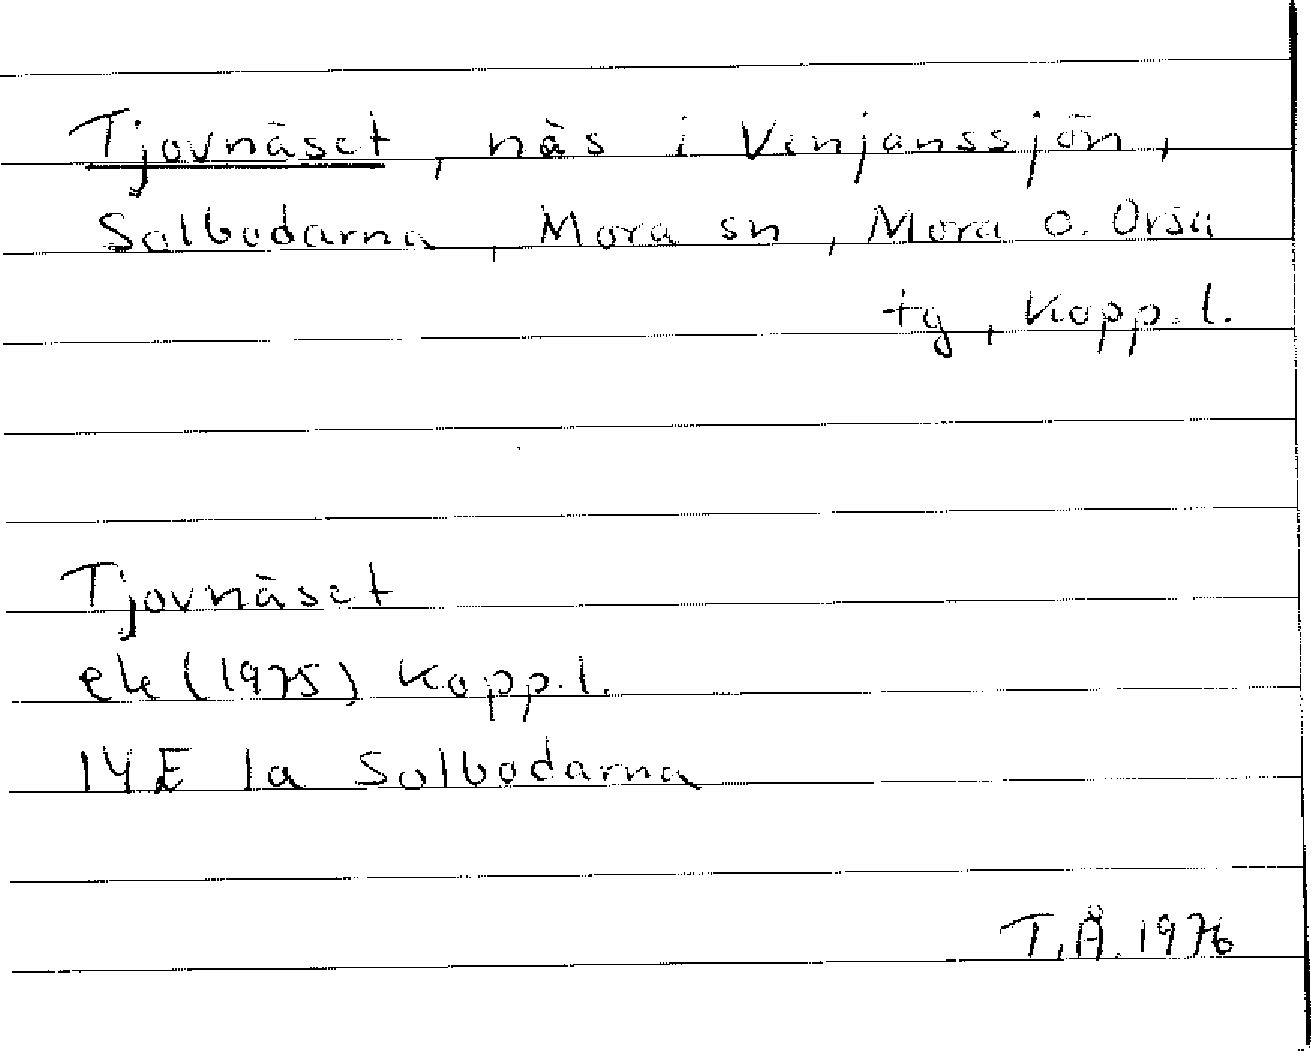 Tjovnäset, näs i Venjanssjön,
Solbodarna, Mora sn, Mora o. Orsa
tg, Kopp. l.
Tjovnäset
ek (1975) Kopp. l.
14E 1a Solbodarna
T.Å. 1976